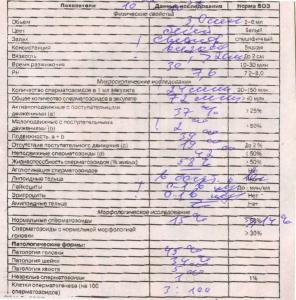 Показатели Данные исследования Норма ВОЗ
Физические свойства
Объем 3,0 мл 2-6 мл
Цвет белый Белый
Запах специфичный
Консистенция вязкая
Вязкость До 2 см
Время разжижения 30 10-30 мин
РН 7,6 7.2-8.0
Микроскопические исследования
Количество сперматозоидов в 1 мл эякулята 24 млн 20-150 млн.
Общее количество сперматозоидов в эякуляте 72 млн >40 млн
Активноподвижные с поступательными
движениями (а) 37 % > 25%
Малоподвижные с поступательными
движениями (b) 2 % > 50%
Подвижность a + b 39 %
Отсутствие поступательного движения (с) До 2%
Неподвижные сперматозоиды (d) < 50%
Жизнеспособность сперматозоидов (% живых) 58 % > 50%
Агглютинация сперматозоидов
Липоидные тельца
Лейкоциты 0-1 в До 1 млн/мл
Эритроциты 0-1 в Нет
Амилоидные тельца Нет
Морфологическое исследование
Нормальные сперматозоиды 15 % 14 %
Сперматозоиды с нормальной морфологией
головки > 30%
Патологические формы:
Патология головки 45 %
Патология шейки
Патология хвоста
Незрелые сперматозоиды 1%
Клетки сперматогенеза (на 100
сперматозоидов) 3 : 100